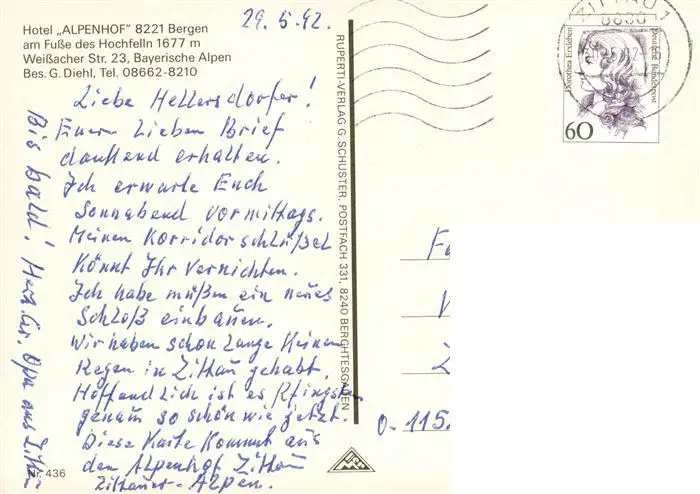 Hotel „ALPENHOF" 8221 Bergen
am Fuße des Hochfelln 1677 m
Weißacher Str. 23, Bayerische Alpen
Bes. G. Diehl, Tel. 08662-8210
29.5.92.
Liebe Hellersdorfer!
Euern Lieben Brief
dankend erhalten.
Ich erwarte Euch
Sonnabend vormittags.
Meinen Korridorschlüßel
könnt Ihr vernichten.
Ich habe müßen ein neues
Schloß einbauen.
Wir haben schon lange keinen
Regen in Zittau gehabt.
Hoffendlich ist es Pfingsten
genau so schön wie jetzt.
Diese Karte kommt aus
dem Alpenhof Zittau
Zittauer-Alpen.
Bis bald! Herz. Gr. Opa aus Zittau
Nr. 436
RUPERTI-VERLAG G. SCHUSTER, POSTFACH 331, 8240 BERCHTESGADEN
ZITTAU 1
8800
Dorothea Erxleben
Deutsche Bundespost
60
O-115